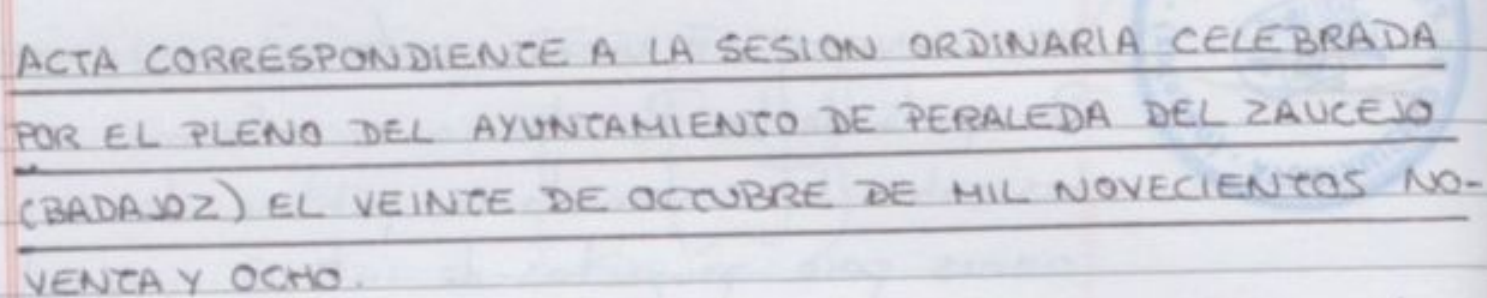 ACTA CORRESPONDIENTE A LA SESION ORDINARIA CELEBRADA
POR EL PLENO DEL AYUNTAMIENTO DE PERALEDA DEL ZAUCEJO
(BADAJOZ) EL VEINTE DE OCTUBRE DE MIL NOVECIENTOS NO-
VENTA Y OCHO.